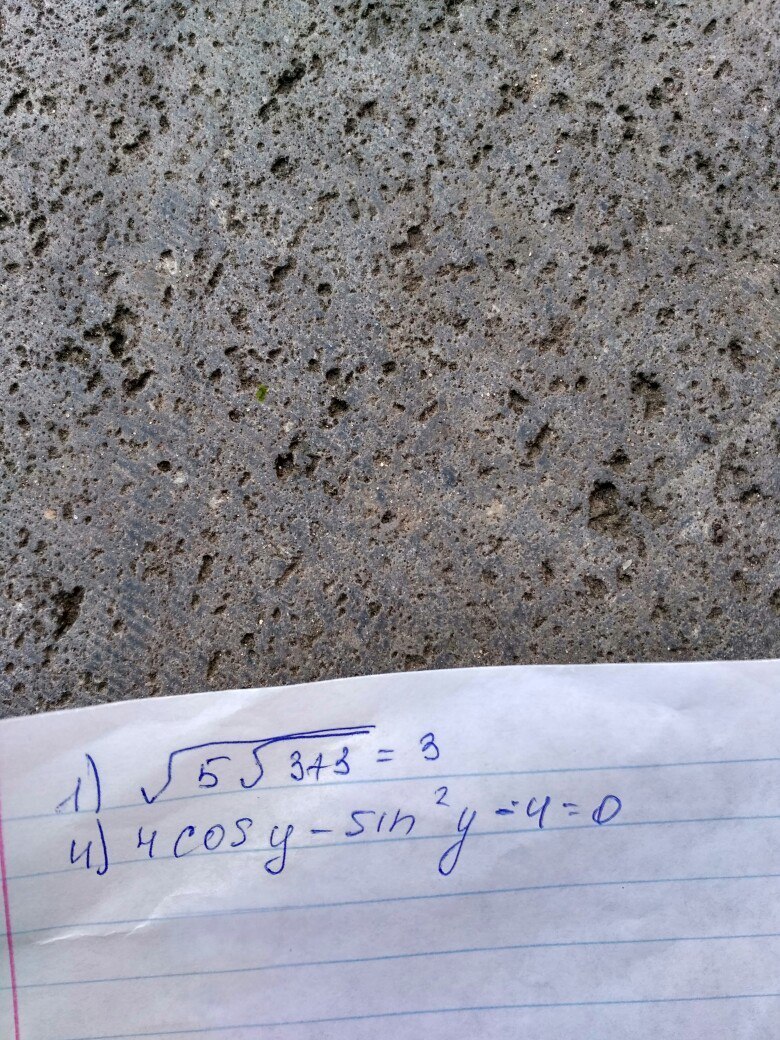 1) √5√3+3 = 3
4) 4 cos y - sin²y - 4 = 0